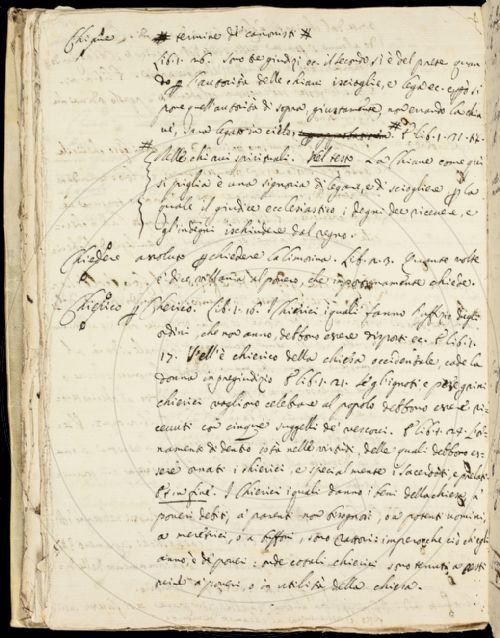 Chiave # termine di canonisti #
Lib. 1. 26. Sono tre giudizi ec. il secondo si è del prete quan
do p l'autorità delle chiavi iscioglie, e lega ec. e ciò si
pone quell'autorità di sopra, giustamente non errando la chia
ve, sarà legato in cielo, # E lib. 1. 21.
# Nelle chiavi spirituali. Nel testo La Chiave come qui
si piglia è una signoria di legare, e di sciogliere p la
quale il giudice ecclesiastico i degni dee ricevere, e
gl'indegni ischiudere dal regno.
Chiedere assoluto p chiedere la limosina. Lib. 2. 3. Quante volte
è dice, villania al povero, che importunamente chiede.
Chierico p Cherico. Lib. 1. 16. I Chierici i quali fanno l'uffizio degli
ordini, che non anno, debbono essere diposti ec. E lib. 1.
17. S'elli è chierico della chiesa occidentale, cade la
donna in pregiudizio E lib. 1. 21. Se gl'ignoti e peregrini
chierici vogliono celebrare al popolo debbono essere ri
cevuti con cinque suggelli de' vescovi. E lib. 1. 24.
namento di dentro istà nelle virtudi, delle quali debbono es
sere ornati i chierici, e spezialmente i sacerdoti, e prelati.
E in fine. I Chierici i quali danno i beni della chiesa, a
poveri debiti, ai parenti non bisognosi, o a potenti uomini,
o a meretrici, o a buffoni, sono imperocchè ciò ch'egli
anno è di poveri: onde cotali chierici sono tenuti a resti
tuire a poveri, o in utilità della chiesa.